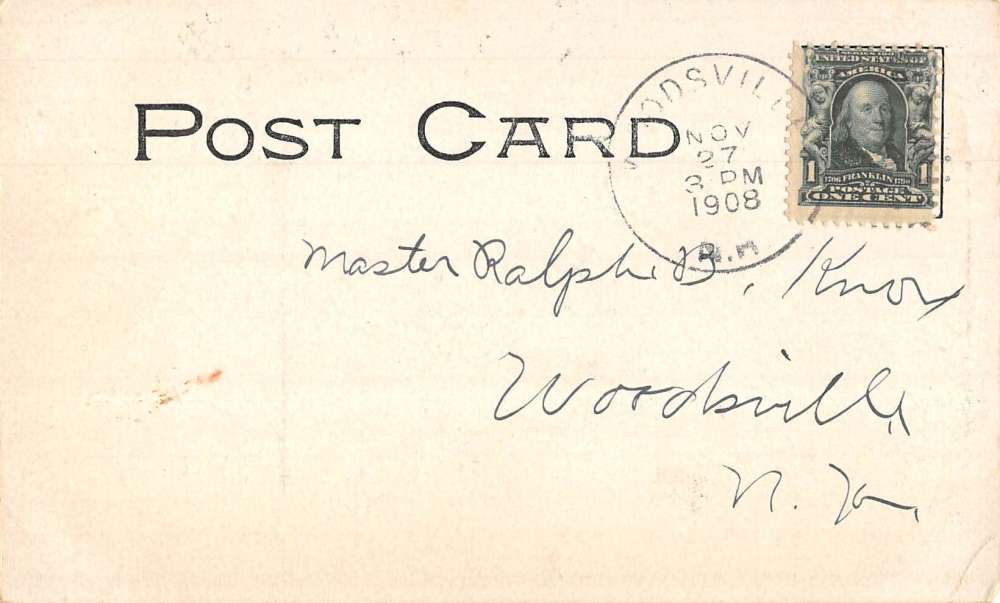 POST CARD
WOODSVILL
NOV
27
3 PM
1908
N.H
SERIES 1902
UNITED STATES OF
AMERICA
1 1706 FRANKLIN 1790 1
POSTAGE
ONE CENT
Master Ralph B. Knox
Woodsville,
N. H.